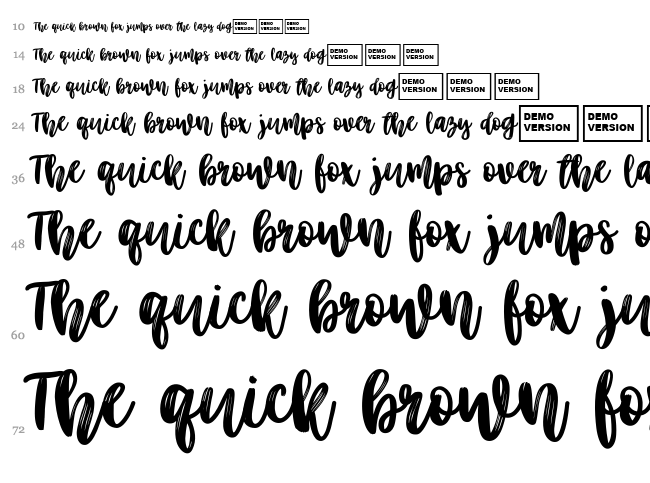 10 The quick brown fox jumps over the lazy dog DEMO VERSION DEMO VERSION DEMO VERSION
14 The quick brown fox jumps over the lazy dog DEMO VERSION DEMO VERSION DEMO VERSION
18 The quick brown fox jumps over the lazy dog DEMO VERSION DEMO VERSION DEMO VERSION
24 The quick brown fox jumps over the lazy dog DEMO VERSION DEMO VERSION
36 The quick brown fox jumps over the la
48 The quick brown fox jumps o
60 The quick brown fox ju
72 The quick brown fo